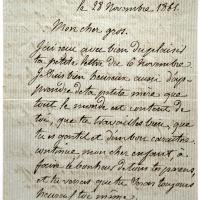 le 28 Novembre 1861.
Mon cher gros.
J'ai reçu avec bien du plaisir
ta petite lettre du 6 Novembre
je suis bien heureux aussi d'ap-
prendre de ta petite mère que
tout le monde est content de
toi, que tu travailles bien, que
tu es gentil et d'un bon caractère
continue mon cher enfant à
faire le bonheur de tous tes parens
et tu verras que tu seras toujours
heureux toi même.